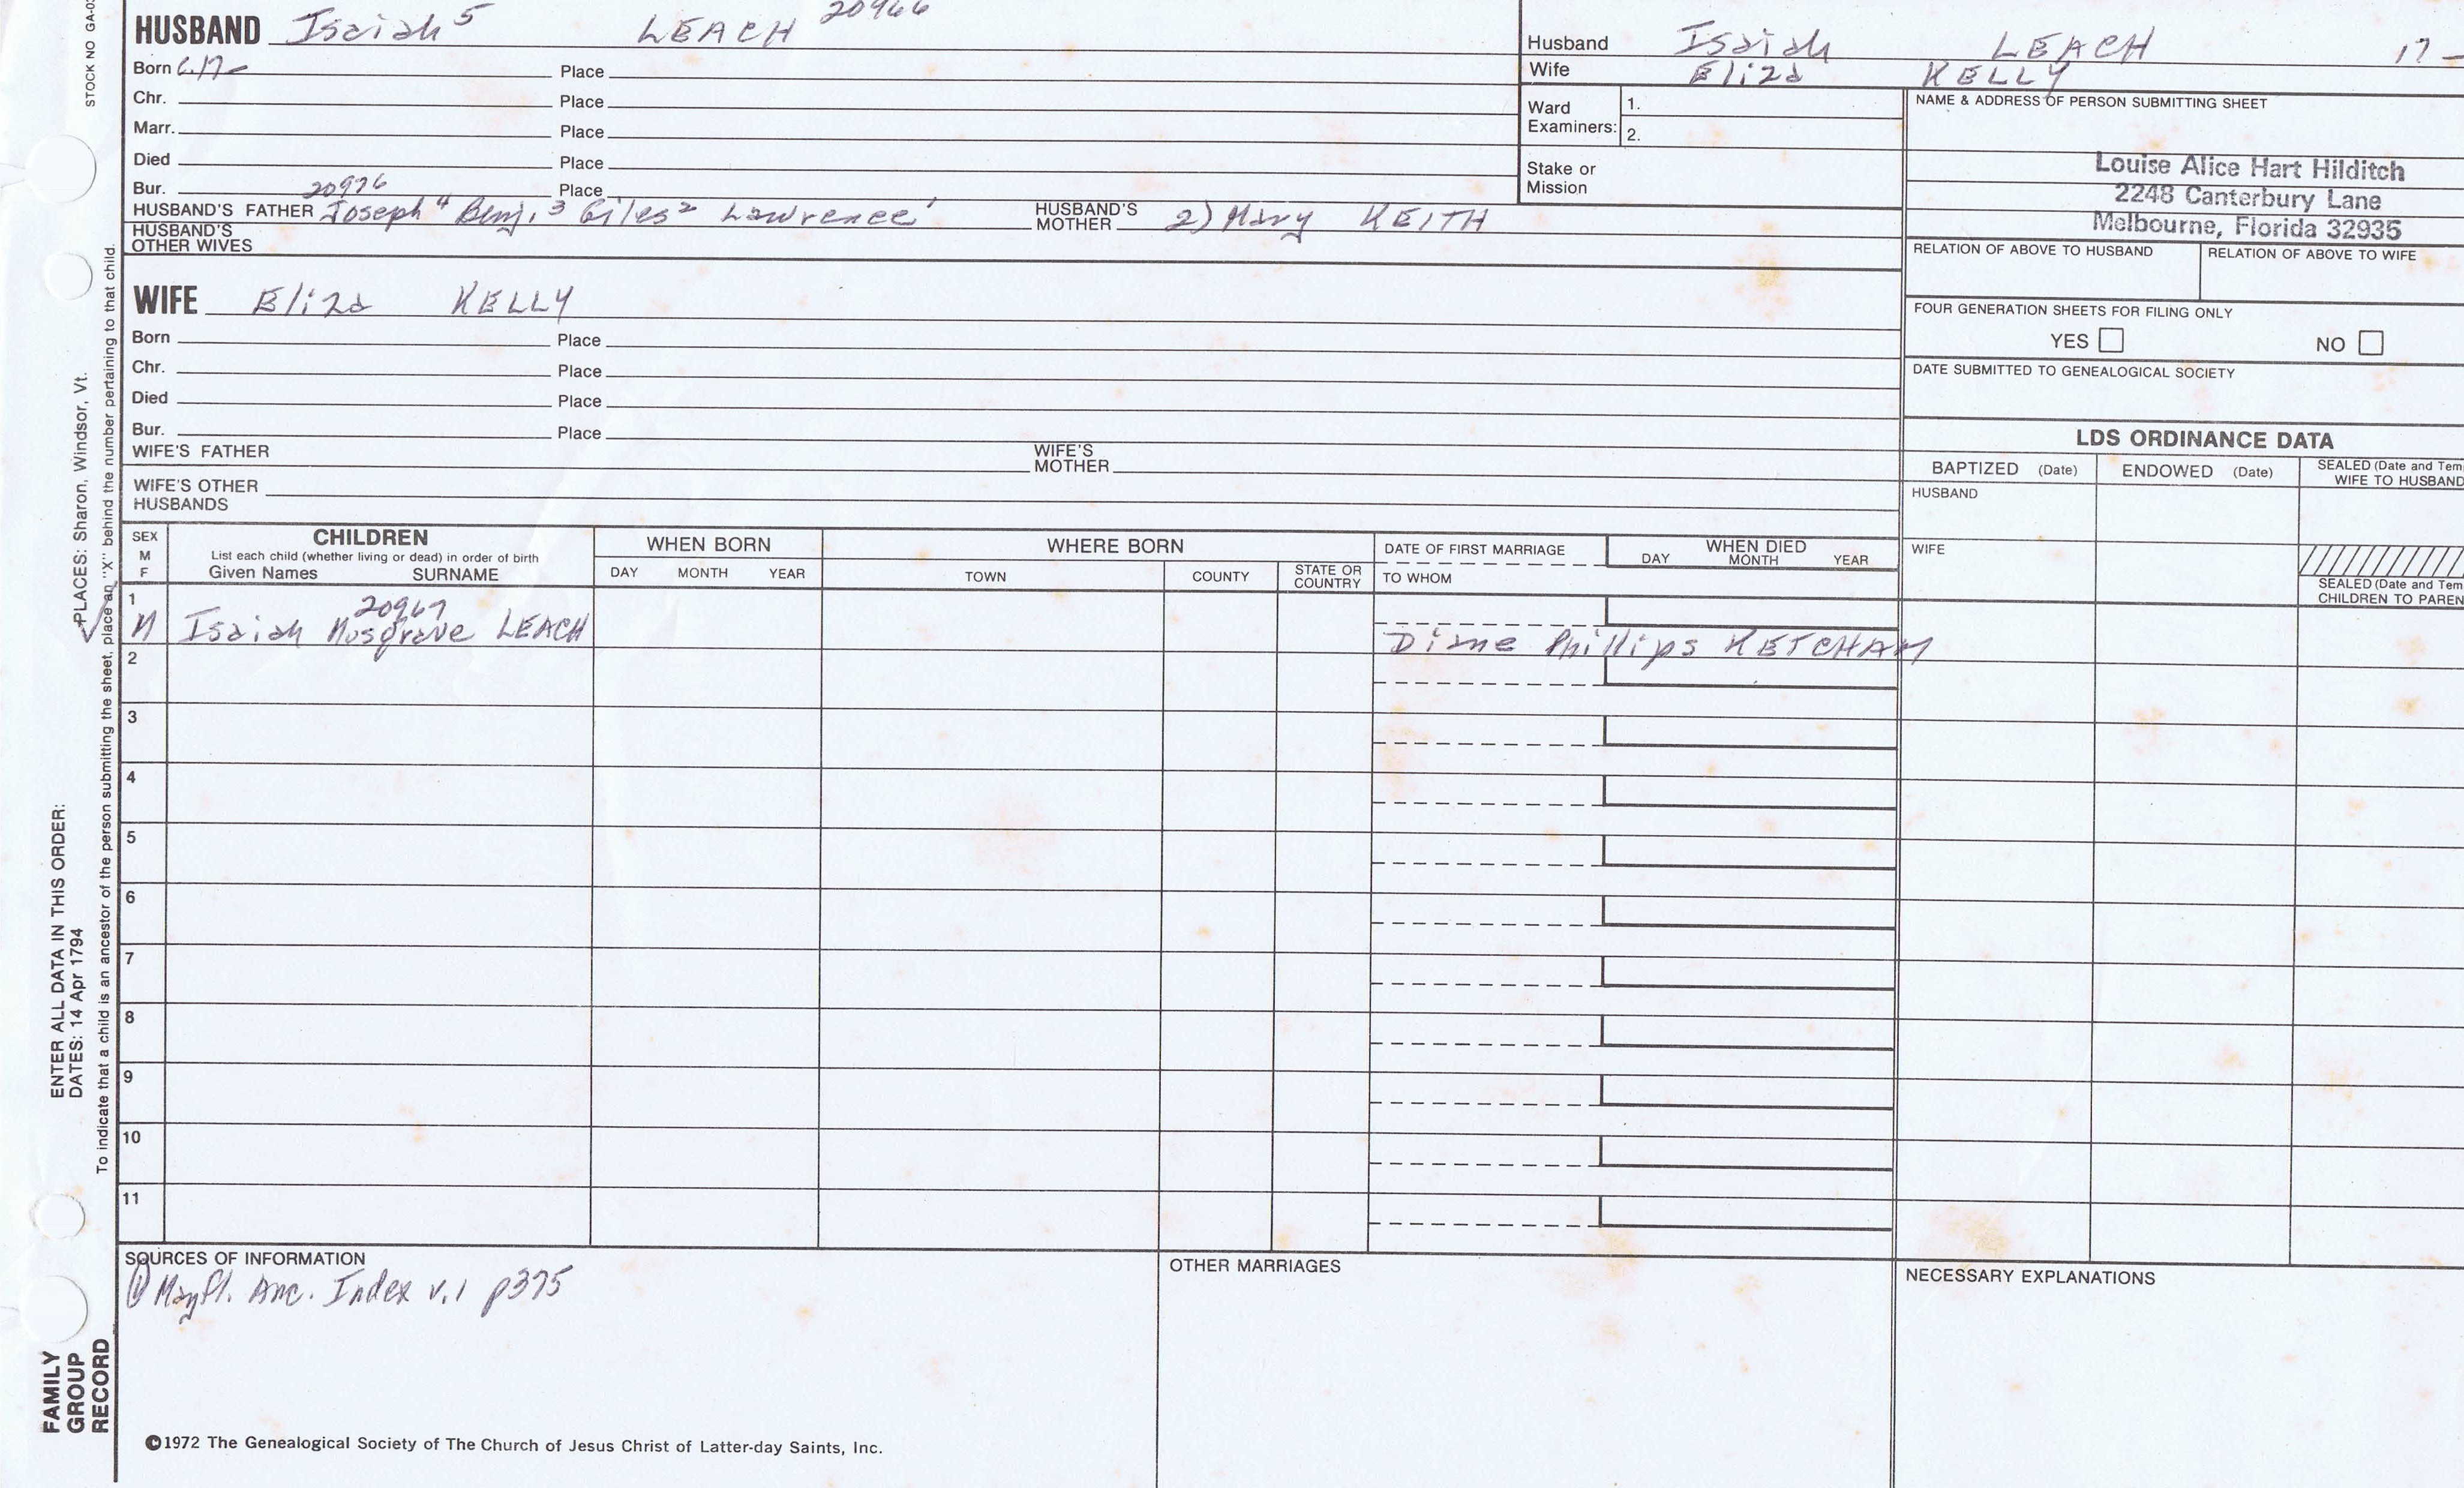 STOCK NO GA-0
HUSBAND Isaiah 5 LEACH 20966
Born C.17- Place
Chr. Place
Marr. Place
Died Place
Bur. Place
20976
HUSBAND'S FATHER Joseph 4 Benj. 3 Giles 2 Lawrence 1 HUSBAND'S MOTHER 2) Mary KEITH
HUSBAND'S OTHER WIVES
WIFE Eliza KELLY
Born Place
Chr. Place
Died Place
Bur. Place
WIFE'S FATHER WIFE'S MOTHER
WIFE'S OTHER HUSBANDS
Husband Isaiah LEACH 17-
Wife Eliza KELLY
Ward Examiners: 1.
2.
Stake or Mission
NAME & ADDRESS OF PERSON SUBMITTING SHEET
Louise Alice Hart Hilditch
2248 Canterbury Lane
Melbourne, Florida 32935
RELATION OF ABOVE TO HUSBAND RELATION OF ABOVE TO WIFE
FOUR GENERATION SHEETS FOR FILING ONLY
YES NO
DATE SUBMITTED TO GENEALOGICAL SOCIETY
LDS ORDINANCE DATA
BAPTIZED (Date) ENDOWED (Date) SEALED (Date and Tem
WIFE TO HUSBAND
HUSBAND
WIFE
SEALED (Date and Tem
CHILDREN TO PAREN
SEX M F
CHILDREN
List each child (whether living or dead) in order of birth
Given Names SURNAME
WHEN BORN
DAY MONTH YEAR
WHERE BORN
TOWN COUNTY STATE OR COUNTRY
DATE OF FIRST MARRIAGE
TO WHOM
WHEN DIED
DAY MONTH YEAR
1
20967
M Isaiah Musgrave LEACH Diane Phillips KETCHAM
2
3
4
5
6
7
8
9
10
11
SOURCES OF INFORMATION
① Mayfl. Anc. Index v.1 p375
OTHER MARRIAGES
NECESSARY EXPLANATIONS
©1972 The Genealogical Society of The Church of Jesus Christ of Latter-day Saints, Inc.
FAMILY
GROUP
RECORD
ENTER ALL DATA IN THIS ORDER:
DATES: 14 Apr 1794
PLACES: Sharon, Windsor, Vt.
To indicate that a child is an ancestor of the person submitting the sheet, place an "X" behind the number pertaining to that child.